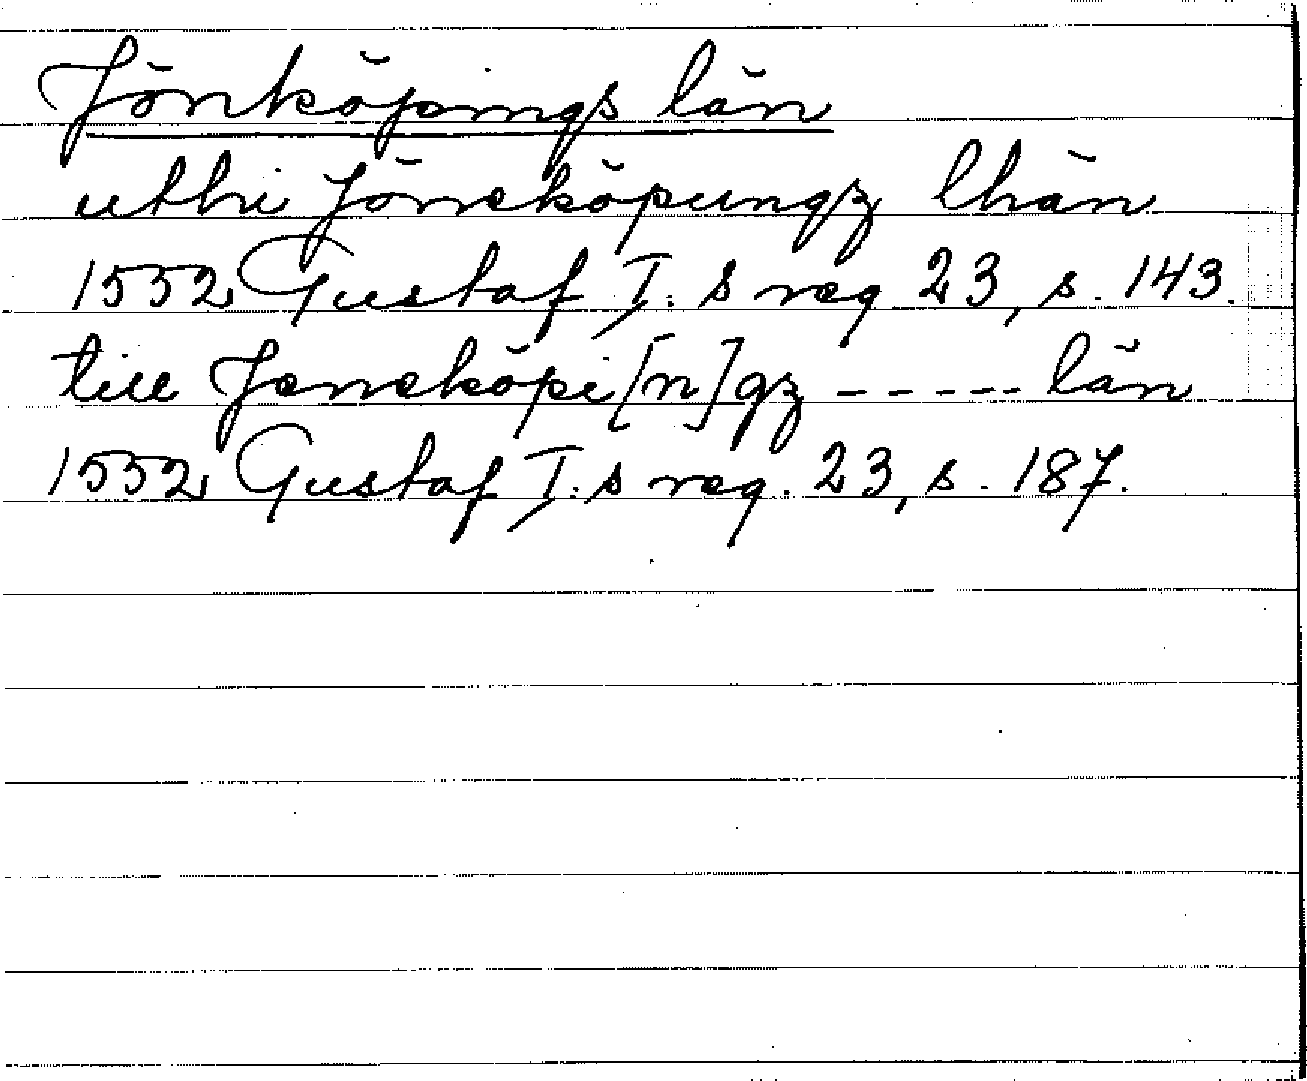 Jönköpings län
uthi Jöneköpungz lhän
1552 Gustaf I:s reg 23, s. 143.
till Jöneköpi[n]gz ----- län
1552 Gustaf I:s reg. 23, s. 187.